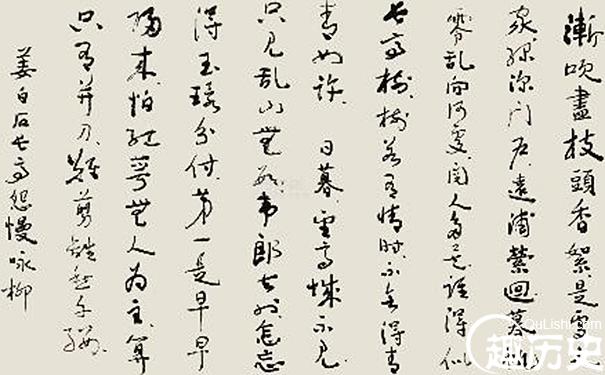 漸吹盡枝頭香絮是處人
家綠深门户遠浦縈迴暮帆
零乱向何處阅人多矣誰得似
长亭樹樹若有情时不会得青
青如許 日暮望高城不見
只见乱山無数韦郎去也怎忘
得玉環分付第一是早早
歸来怕紅萼無人为主算
只有并刀難剪離愁千縷
姜白石长亭怨慢咏柳
QuLishi.com
趣历史